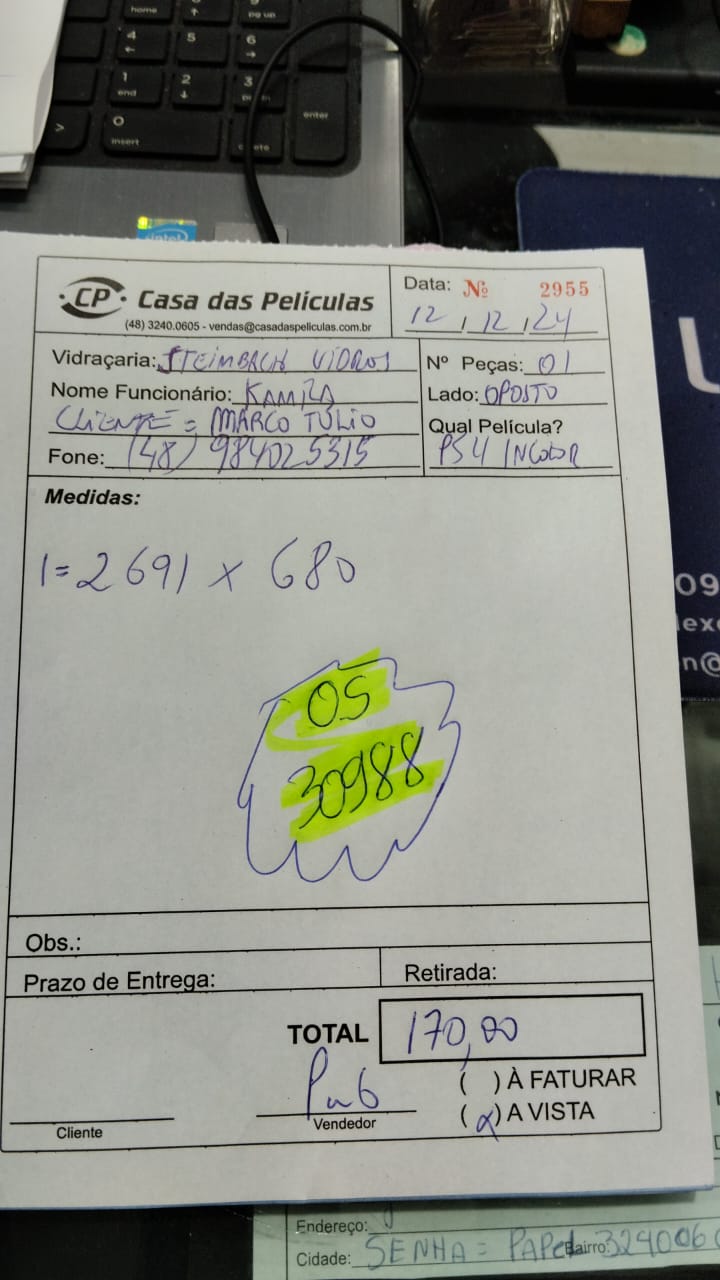 home
pg up
4
5
6
1
end
2
3
enter
0
insert
intel
CP Casa das Películas
(48) 3240.0605 - vendas@casadaspeliculas.com.br
Data: Nº 2955
12, 12, 24
Vidraçaria: STEIMBACH VIDROS
Nº Peças: 01
Nome Funcionário: KAMILA
Lado: OPOSTO
CLIENTE = MARCO TÚLIO
Qual Película?
Fone: (48) 984025315
PS4 INCOLOR
Medidas:
1= 2691 x 680
OS
30988
Obs.:
Prazo de Entrega:
Retirada:
TOTAL 170,00
( ) À FATURAR
(x) A VISTA
Cliente
Vendedor
09
n@
Endereço:
Cidade: SENHA = PAPEL
Bairro: 324006